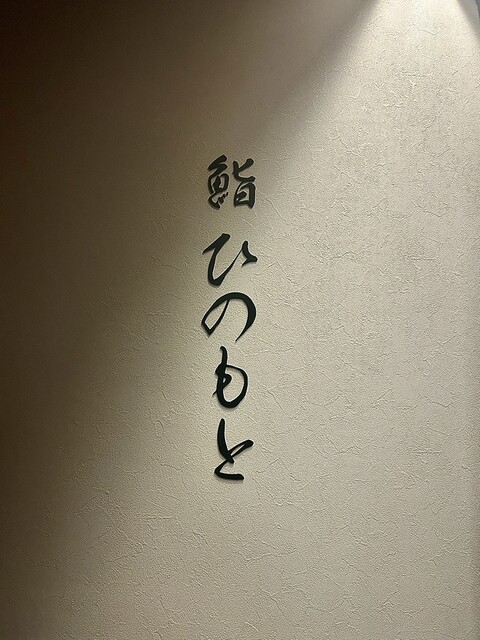 鮨ひのもと